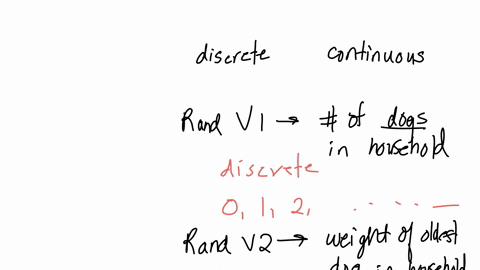 discrete continuous
Rand V1 → # of dogs
in household
discrete
0, 1, 2, . . . . . —
Rand V2 → weight of oldest
dog in household